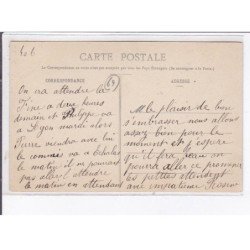 CARTE POSTALE
La Correspondance au recto n'est pas acceptée par tous les Pays Étrangers (Se renseigner à la Poste.)
CORRESPONDANCE
ADRESSE
69
On ira attendre la
Fine a deux heures
demain et Philippe va
a Lyon mardi alors
Pierre viendra avec lui
le commis va a
le matin il ne pourrait
pas aller attendre
le matin en attendant
le plaisir de bien
s'embrasser nous allons
assez bien pour le
moment et j'espere
qu'il fera beau on
pourra aller ce promener
les petites attendent
avec impatience